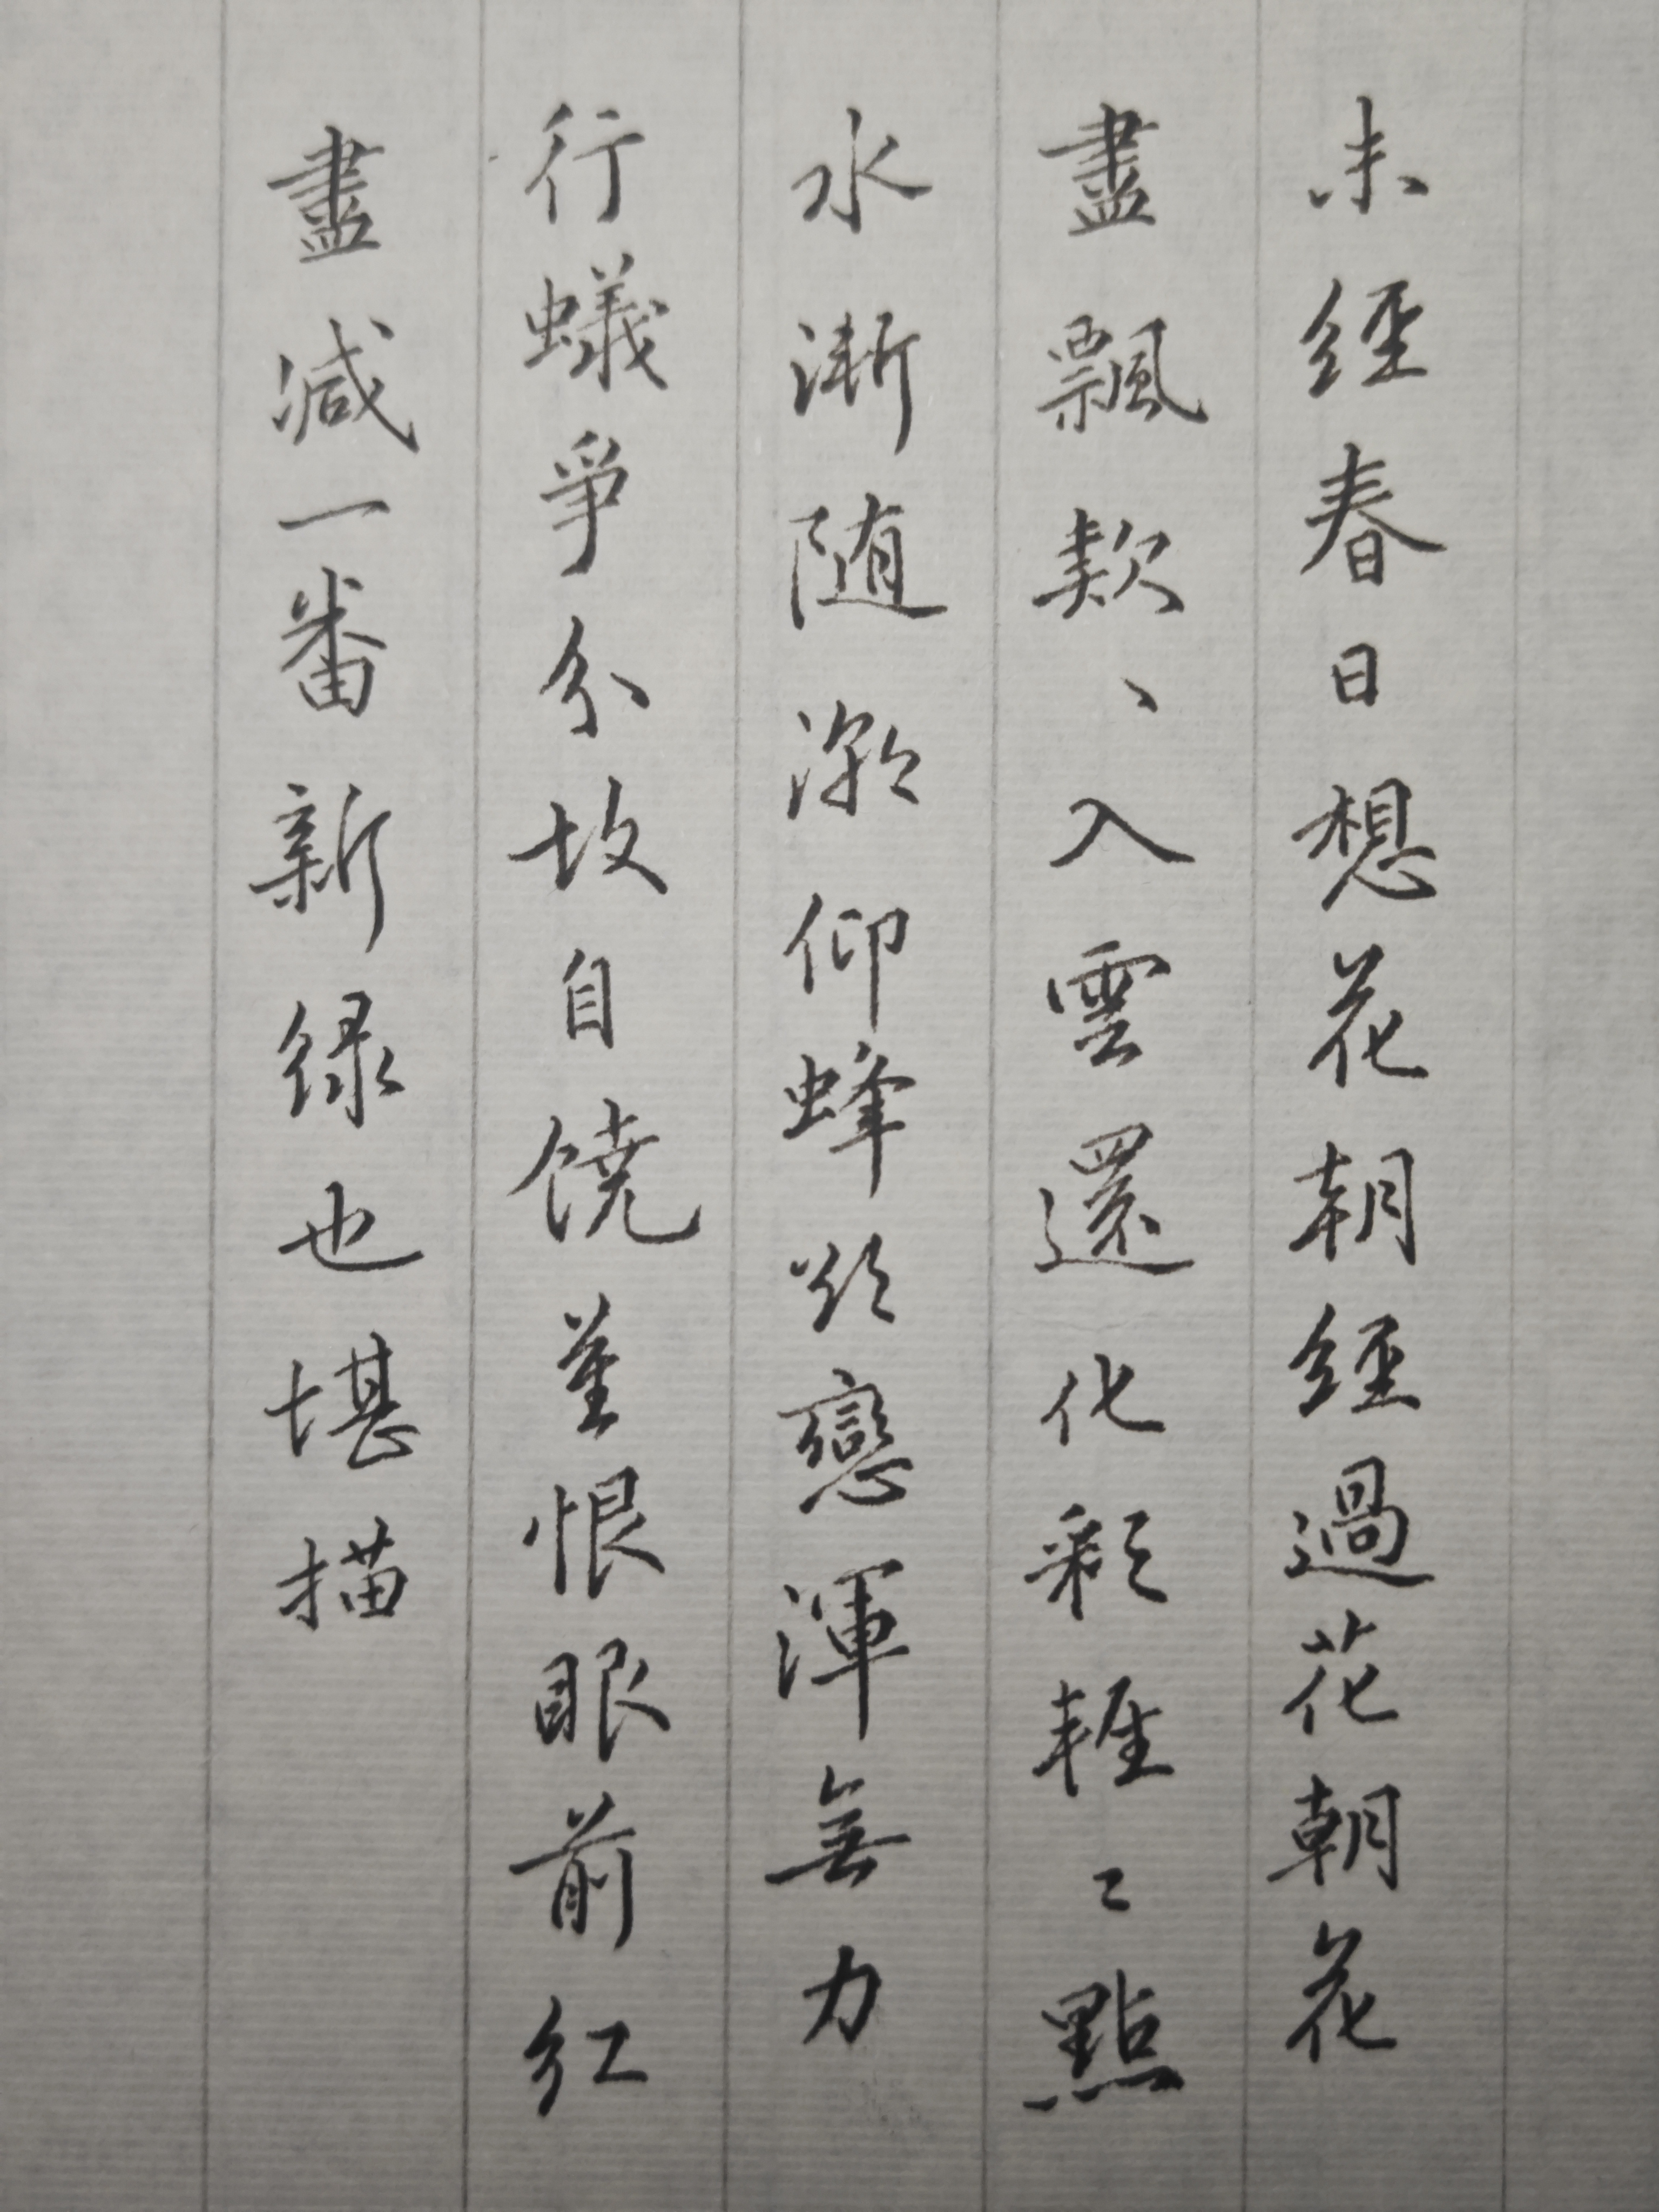 未經春日想花朝經過花朝花
盡飄款、入雲還化彩輕〻點
水漸随潮仰蜂欲戀渾無力
行蟻爭分故自饒恨眼前紅
盡減一番新緑也堪描